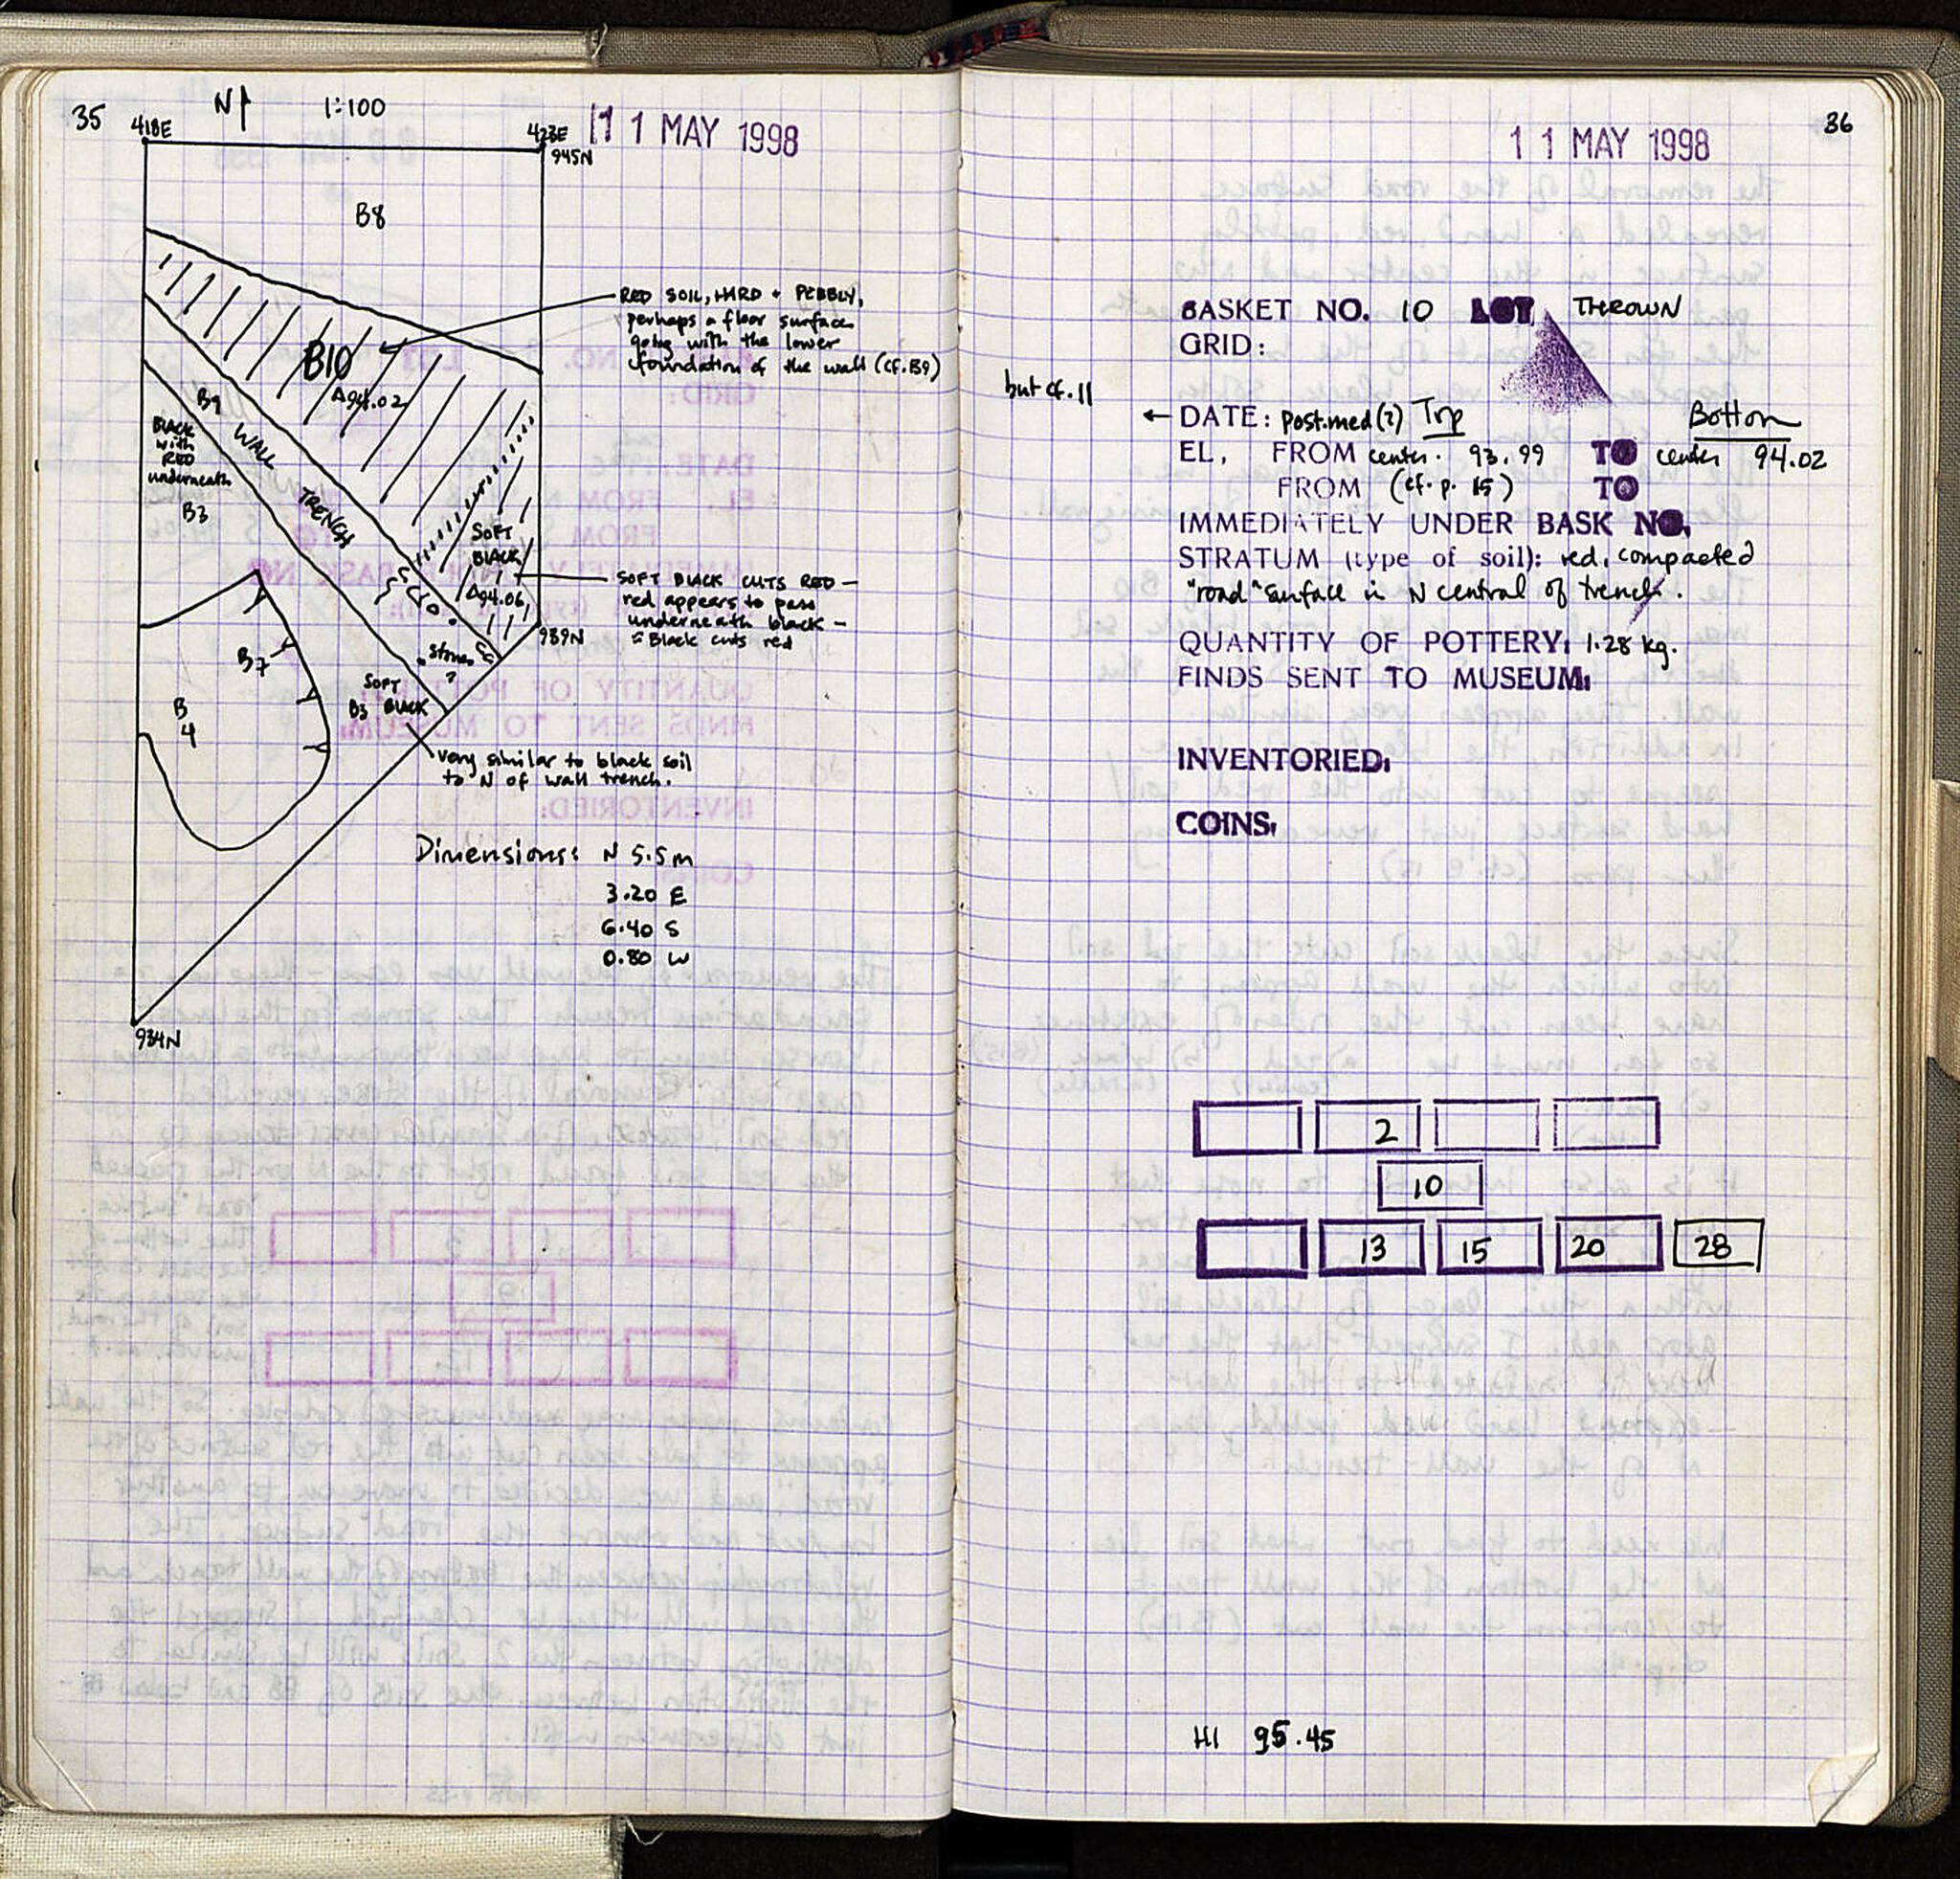 35
N 1:100
11 MAY 1998
418E
423E
945N
B8
RED SOIL, HARD + PEBBLY,
perhaps a floor surface
going with the lower
foundation of the wall (cf. B9)
B10
94.02
B9
WALL
TRENCH
BLACK
with
RED
underneath
B3
SOFT
BLACK
94.06
SOFT BLACK CUTS RED —
red appears to pass
underneath black —
∴ Black cuts red
939N
stones
?
B7
SOFT
B3 BLACK
B
4
very similar to black soil
to N of wall trench.
Dimensions: N 5.5m
3.20 E
6.40 S
0.80 W
934N
36
11 MAY 1998
BASKET NO. 10 LOT THROWN
GRID:
but cf. 11
← DATE: post.med(?) Top Bottom
EL, FROM center. 93.99 TO center 94.02
FROM (cf. p. 15) TO
IMMEDIATELY UNDER BASK NO.
STRATUM (type of soil): red, compacted
"road" surface in N central of trench.
QUANTITY OF POTTERY: 1.28 kg.
FINDS SENT TO MUSEUM:
INVENTORIED:
COINS:
2
10
13 15 20 28
HI 95.45